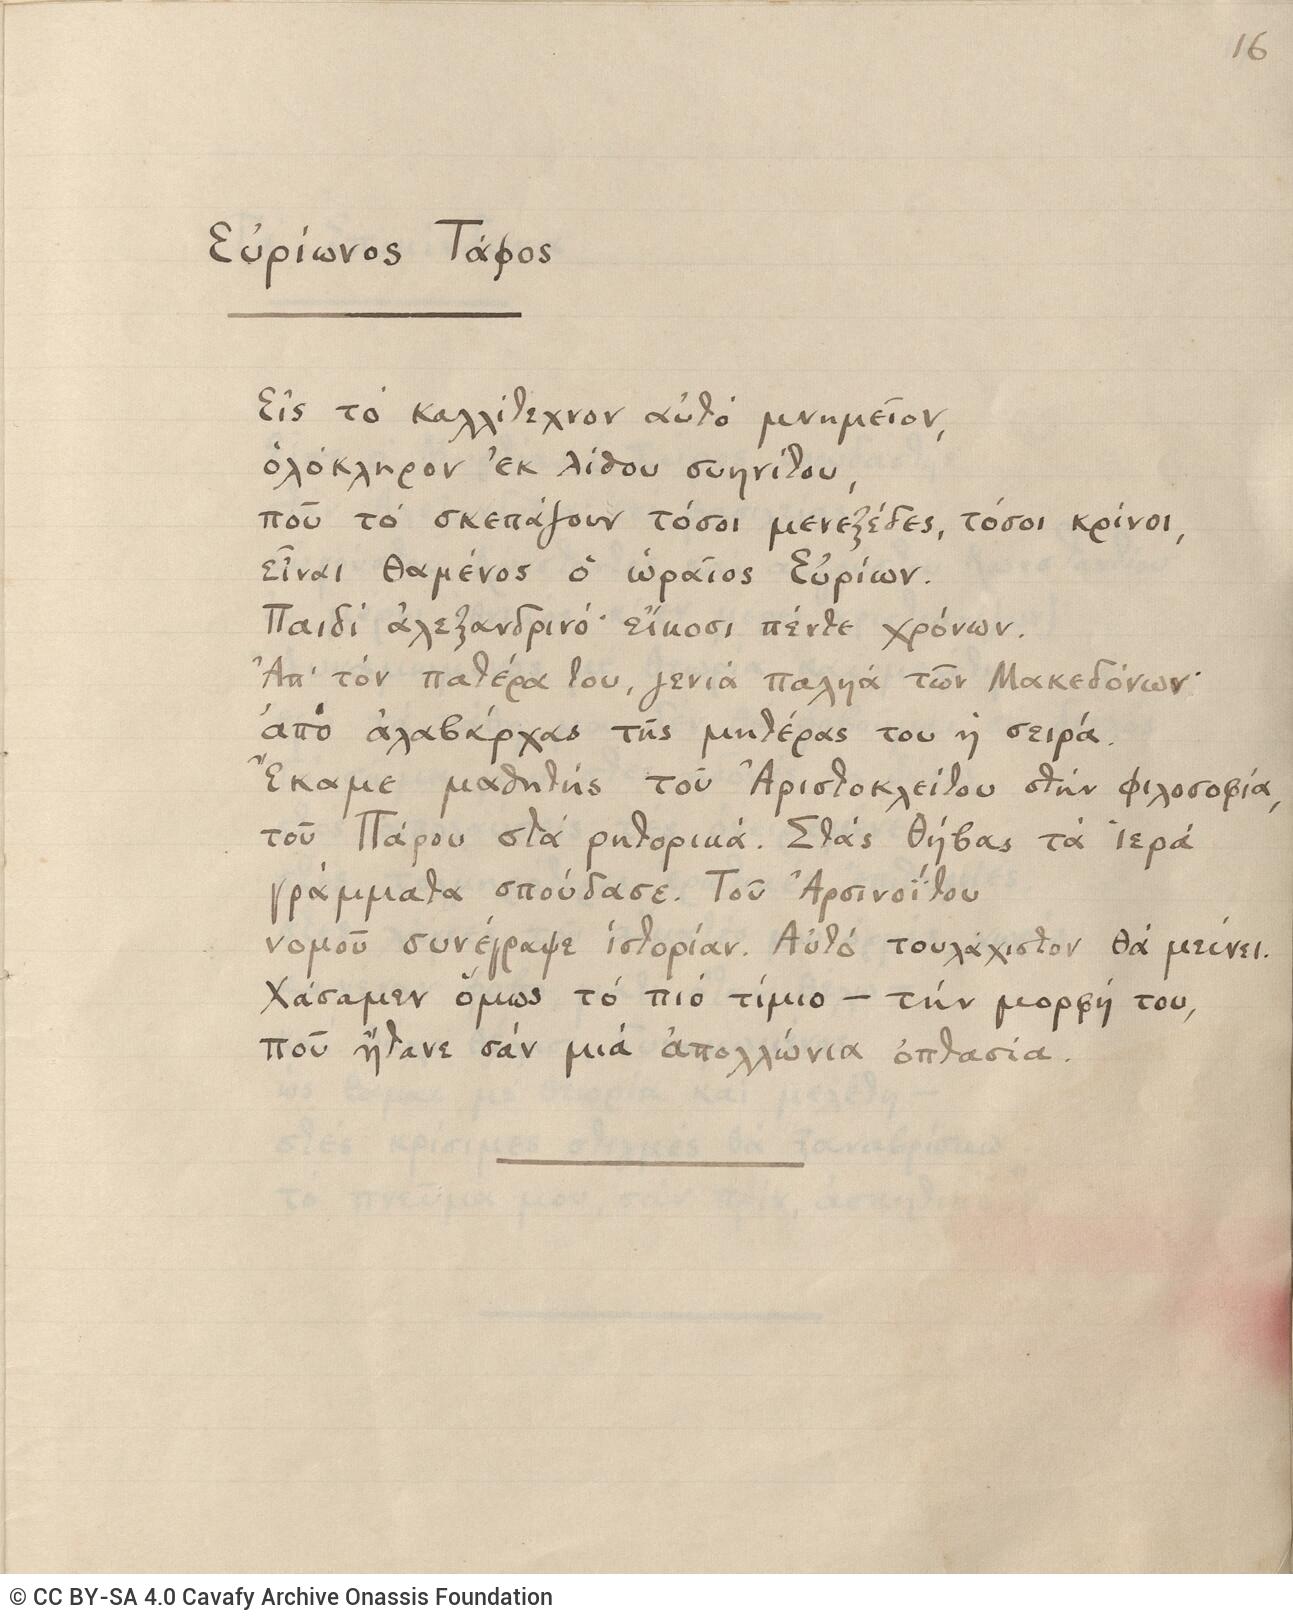 16
Εὐρίωνος Τάφος
Εἰς τὸ καλλίτεχνον αὐτὸ μνημεῖον,
ὁλόκληρον ἐκ λίθου συηνίτου,
ποῦ τὸ σκεπάζουν τόσοι μενεξέδες, τόσοι κρίνοι,
εἶναι θαμένος ὁ ὡραῖος Εὐρίων.
Παιδὶ ἀλεξανδρινό· εἴκοσι πέντε χρόνων.
Ἀπ' τὸν πατέρα του, γενιὰ παληὰ τῶν Μακεδόνων·
ἀπὸ ἀλαβάρχας τῆς μητέρας του ἡ σειρά.
Ἔκαμε μαθητὴς τοῦ Ἀριστοκλείτου στὴν φιλοσοφία,
τοῦ Πάρου στὰ ρητορικά. Στὰς Θήβας τὰ ἱερὰ
γράμματα σπούδασε. Τοῦ Ἀρσινοΐτου
νομοῦ συνέγραψε ἱστορίαν. Αὐτὸ τουλάχιστον θὰ μείνει.
Χάσαμεν ὅμως τὸ πιὸ τίμιο — τὴν μορφή του,
ποῦ ἤτανε σὰν μιὰ ἀπολλώνια ὀπτασία.
© CC BY-SA 4.0 Cavafy Archive Onassis Foundation